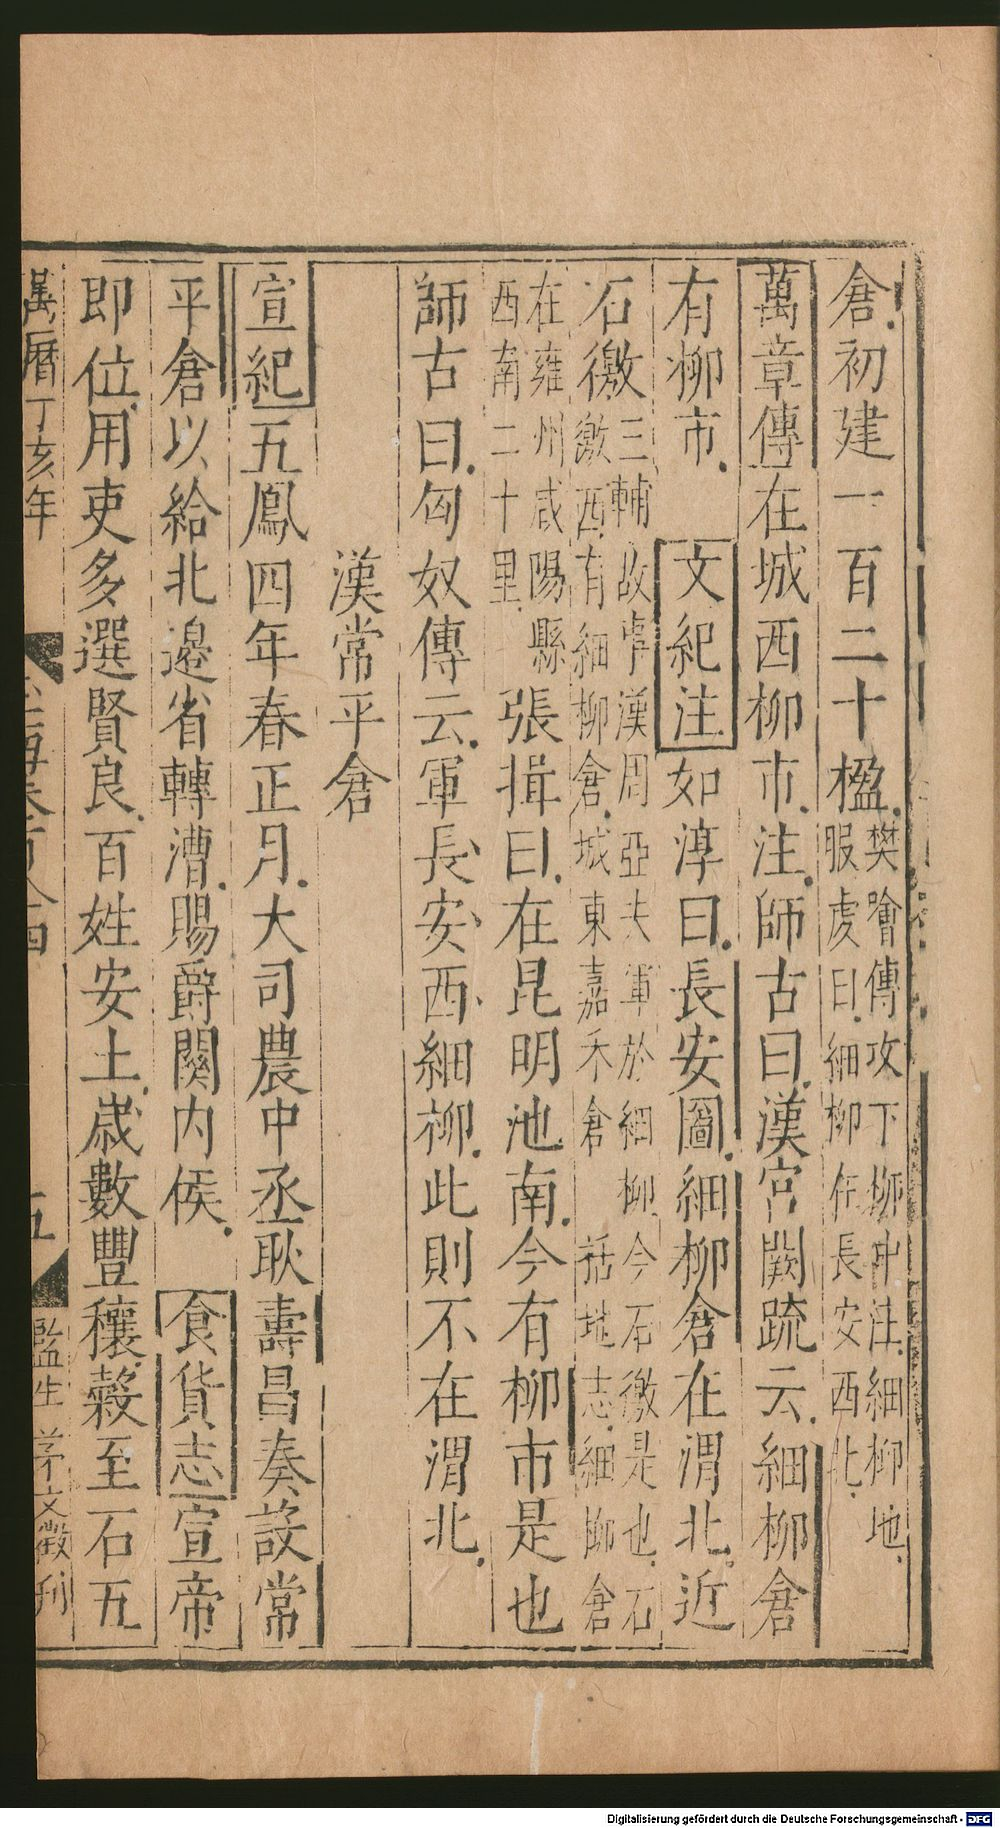 倉初建一百二十楹樊噲傳攻下柳中注細柳地服虔曰細柳在長安西北
萬章傳在城西柳市注師古曰漢宮闕疏云細柳倉
有柳市 文紀注如淳曰長安圖細柳倉在渭北近
石徼三輔故事漢周亞夫軍於細柳今石徼是也石徼西有細柳倉城東嘉禾倉 括地志細柳倉
在雍州咸陽縣西南二十里 張揖曰在昆明池南今有柳市是也
師古曰匈奴傳云軍長安西細柳此則不在渭北
漢常平倉
宣紀五鳳四年春正月大司農中丞耿壽昌奏設常
平倉以給北邊省轉漕賜爵關内侯 食貨志宣帝
即位用吏多選賢良百姓安土歲數豐穰穀至石五
萬曆丁亥年 玉海卷百八四 五 監生茅文徵刊
Digitalisierung gefördert durch die Deutsche Forschungsgemeinschaft - DFG